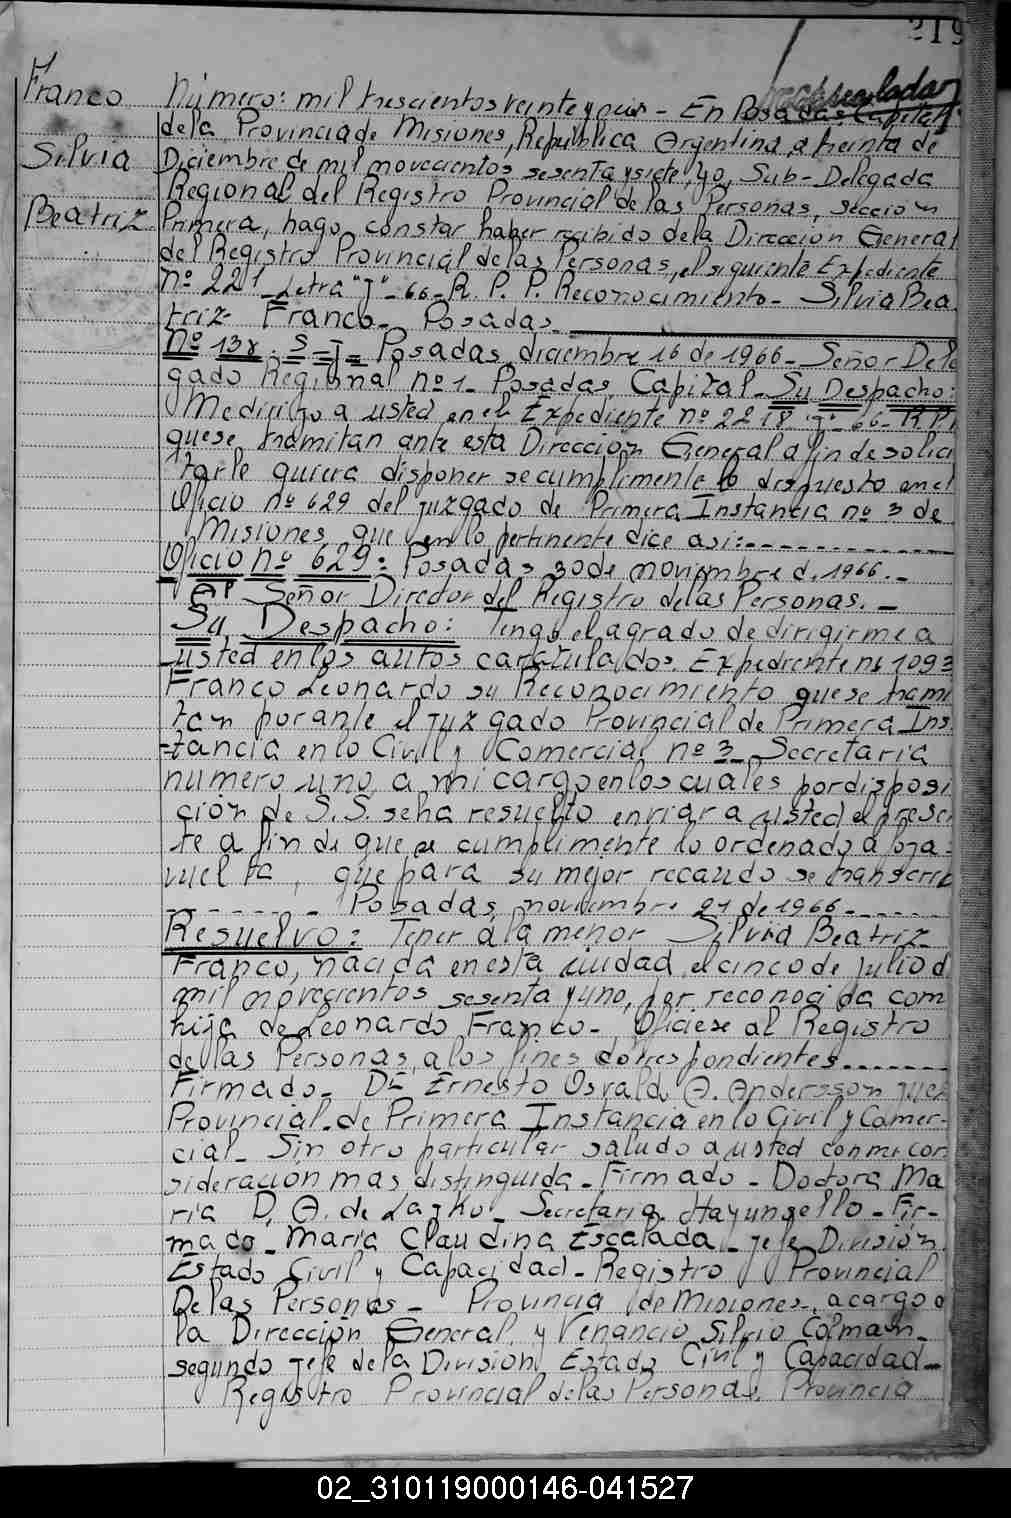 219
Franco
Silvia
Beatriz.
Número: mil trescientos veinte y - En Posadas, Capital
de la Provincia de Misiones, República Argentina, a treinta de
Diciembre de mil novecientos sesenta y siete, yo, Sub-Delegada
Regional del Registro Provincial de las Personas, sección
Primera, hago constar haber recibido de la Dirección General
del Registro Provincial de las Personas, el siguiente Expediente
Nº 221 Letra "J" - 66 - R. P. P. Reconocimiento - Silvia Bea
triz Franco - Posadas.
Nº 138 - S - J = Posadas, diciembre 16 de 1966 - Señor Dele
gado Regional nº 1 - Posadas, Capital - Su Despacho:
Me dirijo a usted en el Expediente nº 2218 "J" - 66 - R.P.
que se tramitan ante esta Dirección General a fin de solici
tarle quiera disponer se cumplimente lo dispuesto en el
Oficio nº 629 del juzgado de Primera Instancia nº 3 de
Misiones que en lo pertinente dice asi:
Oficio nº 629: Posadas 30 de noviembre d. 1966. -
Al Señor Director del Registro de las Personas. -
Su Despacho: Tengo el agrado de dirigirme a
usted en los autos caratulados. Expediente nº 1093
Franco Leonardo su Reconocimiento que se trami
tan por ante el juzgado Provincial de Primera Ins
=tancia en lo Civil y Comercial nº 3 - Secretaria
numero uno, a mi cargo en los cuales por disposi
ción de S.S. se ha resuelto enviar a usted el presen
te a fin de que se cumplimente lo ordenado a foja
vuelta, que para su mejor recaudo se transcrib
- Posadas, noviembre 21 de 1966 -
Resuelvo: Tener a la menor Silvia Beatriz
Franco, nacida en esta ciudad el cinco de julio d
mil novecientos sesenta y uno, por reconocida com
hija de Leonardo Franco - Oficiese al Registro
de las Personas, a los fines correspondientes
Firmado - Dr Ernesto Osvaldo A. Andersson juez
Provincial de Primera Instancia en lo Civil y Comer-
cial - Sin otro particular saludo a usted con mi con
sideración mas distinguida - Firmado - Doctora Ma
ria D. A. de - Secretaria. Hay un sello - Fir-
mado - Maria Claudina Escalada - jefe División
Estado Civil y Capacidad - Registro Provincial
De las Personas - Provincia de Misiones, a cargo d
la Dirección General y Venancio Silvio Colman -
segundo jefe de la División Estado Civil y Capacidad -
Registro Provincial de las Personas. Provincia
02_310119000146-041527